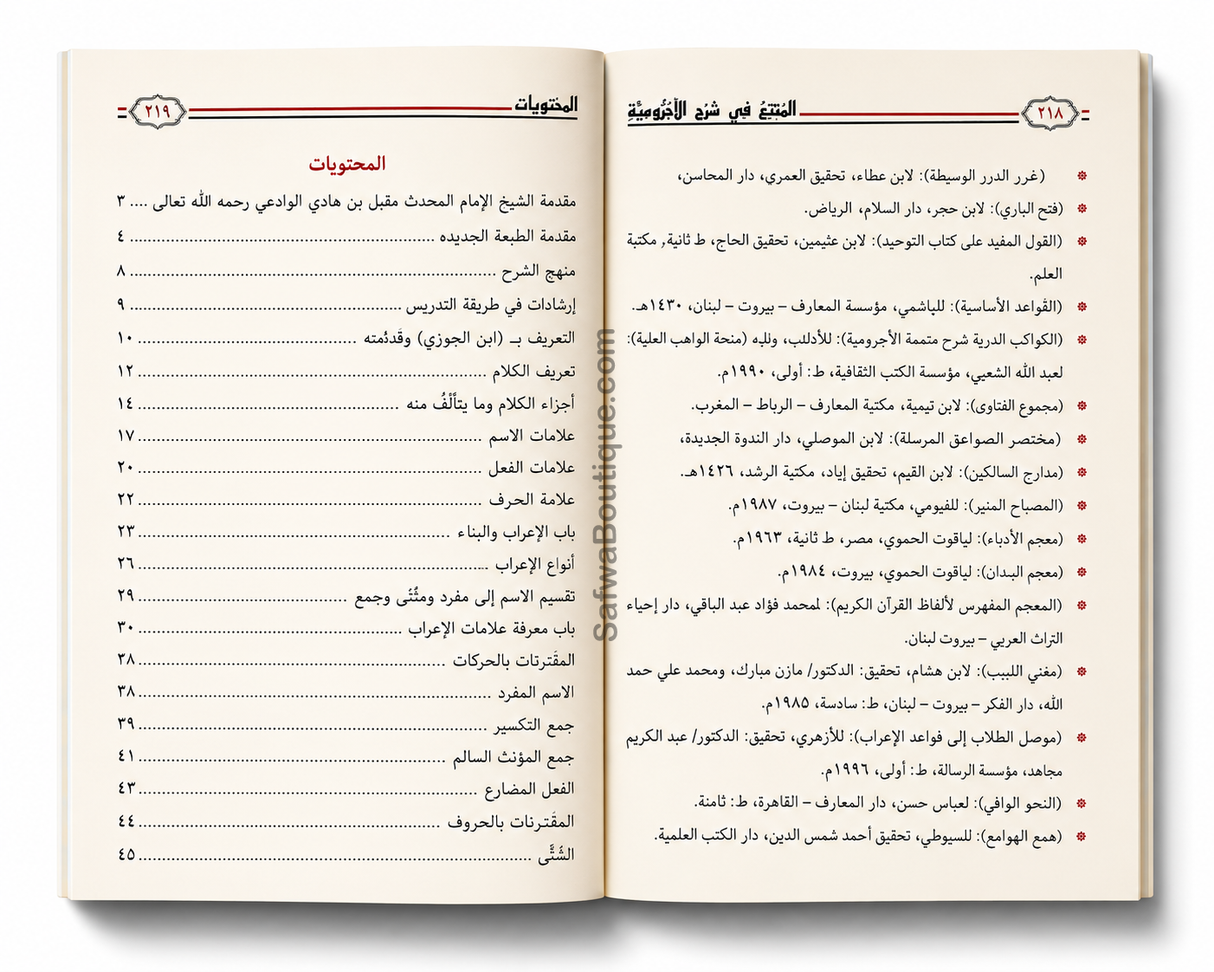 ٢١٨
المُمْتِعُ فِي شَرْحِ الآجُرُّومِيَّةِ
(غرر الدرر الوسيطة): لابن عطاء، تحقيق العمري، دار المحاسن،
(فتح الباري): لابن حجر، دار السلام، الرياض.
(القول المفيد على كتاب التوحيد): لابن عثيمين، تحقيق الحاج، ط ثانية, مكتبة
العلم.
(القواعد الأساسية): للباشمي، مؤسسة المعارف – بيروت – لبنان، ١٤٣٠هـ.
(الكواكب الدرية شرح متممة الأجرومية): للأدلب، وثلبه (منحة الواهب العلية):
لعبد الله الشعيي، مؤسسة الكتب الثقافية، ط: أولى، ١٩٩٠م.
(مجموع الفتاوى): لابن تيمية، مكتبة المعارف – الرباط – المغرب.
(مختصر الصواعق المرسلة): لابن الموصلي، دار الندوة الجديدة،
(مدارج السالكين): لابن القيم، تحقيق إياد، مكتبة الرشد، ١٤٢٦هـ.
(المصباح المنير): للفيومي، مكتبة لبنان – بيروت، ١٩٨٧م.
(معجم الأدباء): لياقوت الحموي، مصر، ط ثانية، ١٩٦٣م.
(معجم البدان): لياقوت الحموي، بيروت، ١٩٨٤م.
(المعجم المفهرس لألفاظ القرآن الكريم): لمحمد فؤاد عبد الباقي، دار إحياء
التراث العربي – بيروت لبنان.
(مغني اللبيب): لابن هشام، تحقيق: الدكتور/ مازن مبارك، ومحمد علي حمد
الله، دار الفكر – بيروت – لبنان، ط: سادسة، ١٩٨٥م.
(موصل الطلاب إلى فواعد الإعراب): للأزهري، تحقيق: الدكتور/ عبد الكريم
مجاهد، مؤسسة الرسالة، ط: أولى، ١٩٩٦م.
(النحو الوافي): لعباس حسن، دار المعارف – القاهرة، ط: ثامنة.
(همع الهوامع): للسيوطي، تحقيق أحمد شمس الدين، دار الكتب العلمية.
SafwaBoutique.com
المحتويات
٢١٩
المحتويات
مقدمة الشيخ الإمام المحدث مقبل بن هادي الوادعي رحمه الله تعالى .... ٣
مقدمة الطبعة الجديده ........ ٤
منهج الشرح ........ ٨
إرشادات في طريقة التدريس ........ ٩
التعريف بـ (ابن الجوزي) وقَدئمته ........ ١٠
تعريف الكلام ........ ١٢
أجزاء الكلام وما يتألْفُ منه ........ ١٤
علامات الاسم ........ ١٧
علامات الفعل ........ ٢٠
علامة الحرف ........ ٢٢
باب الإعراب والبناء ........ ٢٣
أنواع الإعراب ........ ٢٦
تقسيم الاسم إلى مفرد ومثُنُى وجمع ........ ٢٩
باب معرفة علامات الإعراب ........ ٣٠
المقَترتات بالحركات ........ ٣٨
الاسم المفرد ........ ٣٨
جمع التكسير ........ ٣٩
جمع المؤنث السالم ........ ٤١
الفعل المضارع ........ ٤٣
المقَترنات بالحروف ........ ٤٤
الشُتَّى ........ ٤٥